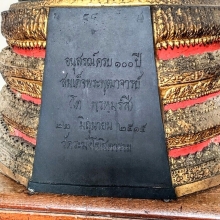 อนุสรณ์ครบ ๑๐๐ ปี
สมเด็จพระพุฒาจารย์
(โต พรหมรังสี)
๒๒ มิถุนายน ๒๕๑๕